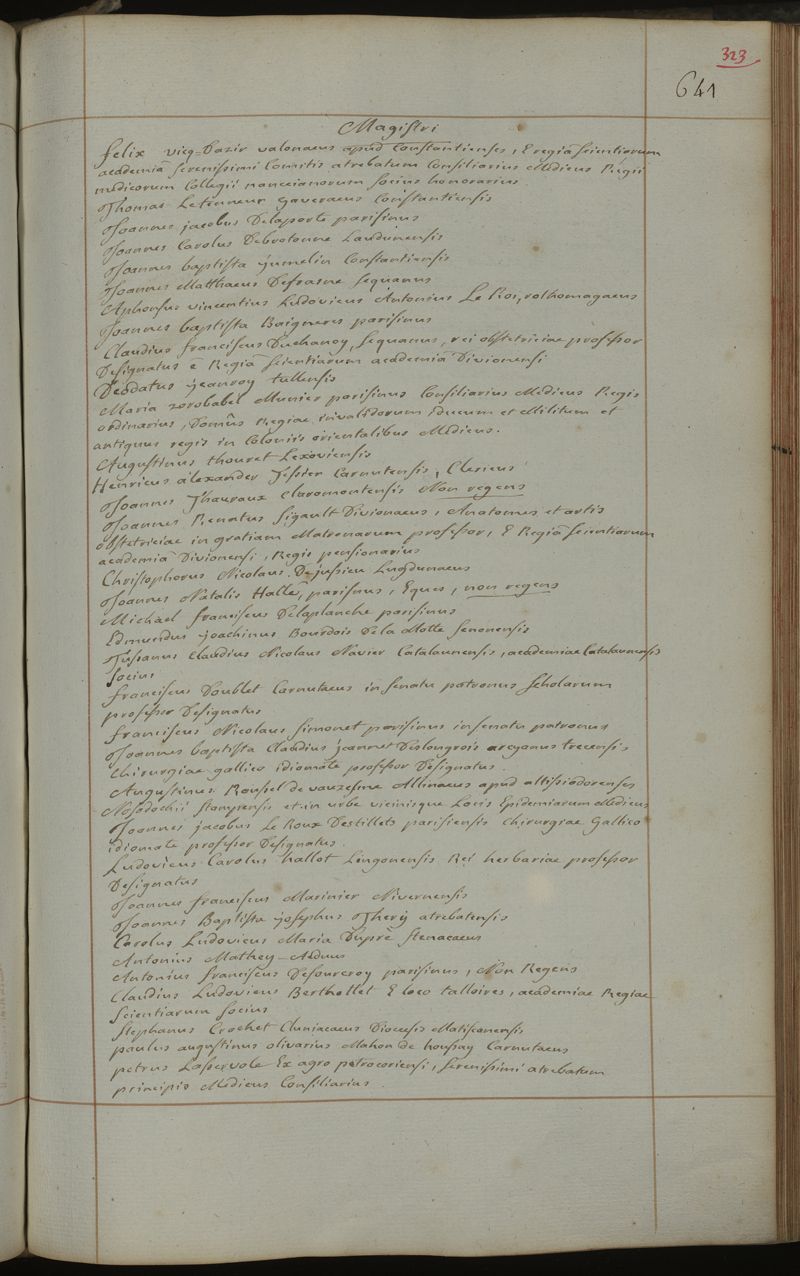 323
641
Magistri
felix vicq-Dazir valonaeus apud Constantienses, E regiâ scientiarum
academiâ serenissimi Comitis atrebatum Consiliarius Medicus Regii
medicorum Collegii nanceianorum socius honorarius
Thomas Letenneur gaveraeus Constantiensis
Joannes jacobus Delaporte parisinus
Joannes Carolus Debrotonne Laudunensis
Joannes baptista jumelin Constantiensis
Joannes Matthaeus Defrasne sequanus
Alphonsus vincentius Ludovicus Antonius Le Roi, rothomagaeus
Joannes baptista Baigneres parisinus
Claudius franciscus Duchanoy, sequanus, rei obstetriciae professor
Designatus è Regiâ scientiarum academiâ Divionensi
Deodatus jeanroy tullensis
Maria zorobabel Munier parisinus Consiliarius Medicus Regis
ordinarius, Domûs Regiae invalidorum Ducum et Militum et
antiquus regis in Coloniis orientalibus Medicus.
Augustinus thouret Lexoviensis
Henricus alexander Tessier Carnutensis, Clericus
Joannes Thauraux Claromontensis Non regens
Joannes Renatus Sigault Divionaeus, Anatomes et artis
obstetriciae in gratiam Matronarum professor, E Regiâ scientiarum
academiâ Divionensi, Regis pensionarius
Christophorus Nicolaus Dejussieu Lugdunaeus
Joannes Natalis Hallé, parisinus, Eques, non regens
Michael franciscus Delaplanche parisinus
Edmundus joachinus Bourdois De la Motte senonensis
Tussanus Claudius Nicolaus Navier Catalaunensis, academiae Catalaunensis
socius
franciscus Doublet Carnutaeus in senatu patronus scholarum
professor Designatus
franciscus Nicolaus simonet parisinus in senatu patronus
Joannes baptista Claudius jeannet Deslongrois arcyanus trecensis
Chirurgiae gallico idiomate professor Designatus.
Augustinus Roussel de vauzesme Allinaeus apud altissiodorenses
Nosodochii stampensis et in urbe vicinisque Locis Epidemiarum Medicus
Joannes jacobus Le Roux Destillets parisiensis Chirurgiae Gallico
idiomate professor Designatus.
Ludovicus Carolus hallot Lingonensis Rei herbariae professor
Designatus
Joannes franciscus Marinier Nivernensis
Joannes Baptista josephus Thery atrebatensis
Carolus Ludovicus Maria Dupré stenacaeus
Antonius Mathey-Aeduus
Antonius franciscus Defourcroy parisinus, Non Regens
Claudius Ludovicus Berthollet E loco talloires, academiae Regiae
scientiarum socius
stephanus Crochet Cluniacaeus Dioecesis Matisconensis
paulus augustinus olivarius Mahon de houssay Carnutaeus
petrus Lasservole Ex agro petrocoriensi, serenissimi atrebatum
principis Medicus Consiliarius.